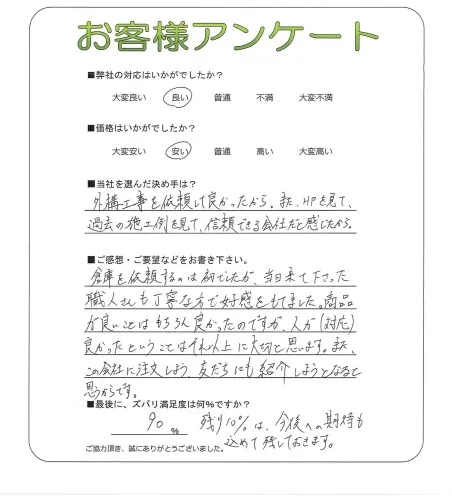 お客様アンケート
■弊社の対応はいかがでしたか？
大変良い 良い 普通 不満 大変不満
■価格はいかがでしたか？
大変安い 安い 普通 高い 大変高い
■当社を選んだ決め手は？
外構工事を依頼して良かったから。また、HPを見て、
過去の施工例を見て、信頼できる会社だと感じたから。
■ご感想・ご要望などをお書き下さい。
倉庫を依頼するのは初でしたが、当日来て下さった
職人さんも丁寧な方で好感をもてました。商品
が良いことはもちろん良かったのですが、人が（対応）
良かったということはそれ以上に大切と思います。また、
この会社に注文しよう、友だちにも紹介しようとなると
思うからです。
■最後に、ズバリ満足度は何％ですか？
90 % 残り10%は、今後への期待も
込めて残しておきます。
ご協力頂き、誠にありがとうございました。